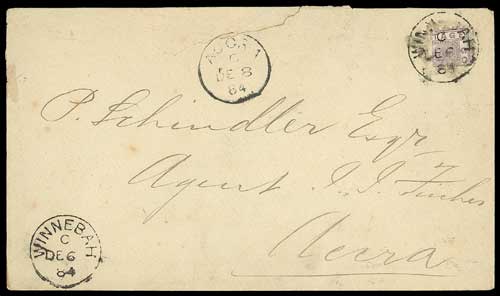 ACCRA
C
DE 8
84
WINNEBAH
C
DE 6
84
P. Schindler Esqr
Agent J. J. Fischer
Accra
WINNEBAH
C
DE 6
84